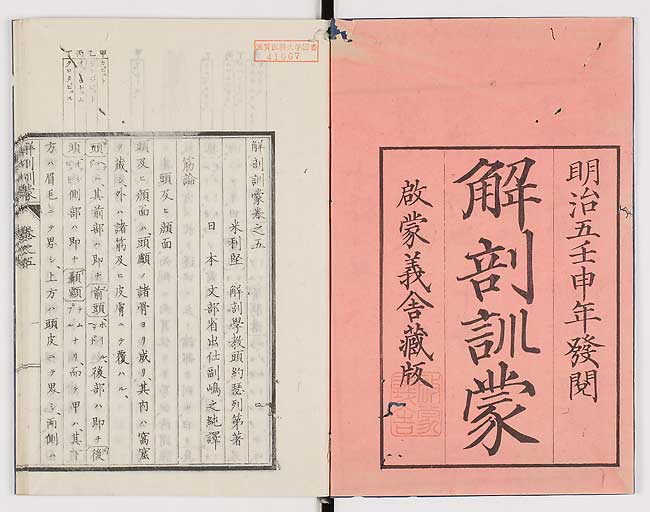 明治五壬申年發閱
解剖訓蒙
啟蒙義舎藏版
滋賀医科大学図書
41667
解剖訓蒙巻之五
米利堅 解剖學教頭約瑟列第著
日本 文部省出仕副嶋之純譯
筋論
頭及ヒ顔面
頭及ヒ顔面ハ頭顱ノ諸骨ヨリ成リ其内ハ窩窟
ヲ成シ外ハ諸筋及ヒ皮膚ニテ覆ハル
頭ハ其前部ハ即チ前頭後部ハ即チ後
頭側部ハ即チ顳顬ナリ而テ甲ハ其
方ハ眉毛ニテ界シ上方ハ頭皮ニテ界シ両側ハ
解剖訓蒙 巻之五